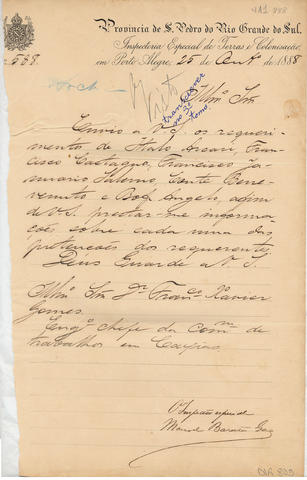 VA1.888
Provincia de S. Pedro do Rio Grande do Sul.
Inspectoria Especial de Terras e Colonisação,
em Porto Alegre, 25 de Out.º de 1888
568.
Visto
transcrever
no 3º
tomo
Illmo Snr
Envio a V. S. os requeri-
mentos de Italo Arcari, Fran-
cisco Castagna, Francisco Ja-
nuario Salerno, Conte Bene-
venuto e Boz Angelo, afim
de V. S. prestar-me informa-
ções sobre cada uma das
pretenções dos requerentes.
Deus Guarde a V. S.
Illmo Snr Dr Franco Xer Xavier
Gomes.
Engº Chefe da Comm de
trabalhos em Caxias.
O Inspector especial
Manoel Barata Góes